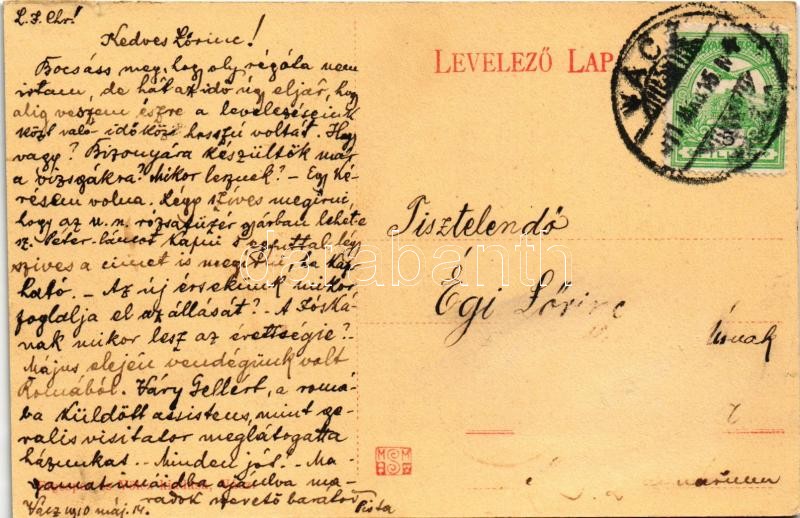 L. J. Chr!
Kedves Lőrinc!
Bocsáss meg, hogy oly régóta nem
irtam, de hát az idő úgy eljár, hogy
alig veszem észre a levelezésünk
közt való időköz hosszú voltát. Hogy
vagy? Bizonyára készültök már
a vizsgákra? Mikor lesznek? – Egy ké-
résem volna. Légy szíves megirni,
hogy az u. n. rózsafüzér gyárban lehet-e
sz. Péter-láncot kapni s egyuttal légy
szíves a címet is megirni, ha kap-
ható. – Az új érsekünk mikor
foglalja el az állását? – A Jóská-
nak mikor lesz az érettségie? –
Május elején vendégünk volt
Romából. Váry Gellért, a romá-
ba küldött assistens, mint ge-
ralis visitator meglátogatta
házunkat. – Minden jót! – Ma-
gamat imáidba ajánlva ma-
radok szerető barátod
Vácz 1910 máj. 14. Pista
LEVELEZŐ LAP
VÁCZ
Tisztelendő
Égi Lőrinc
úrnak
darabanth